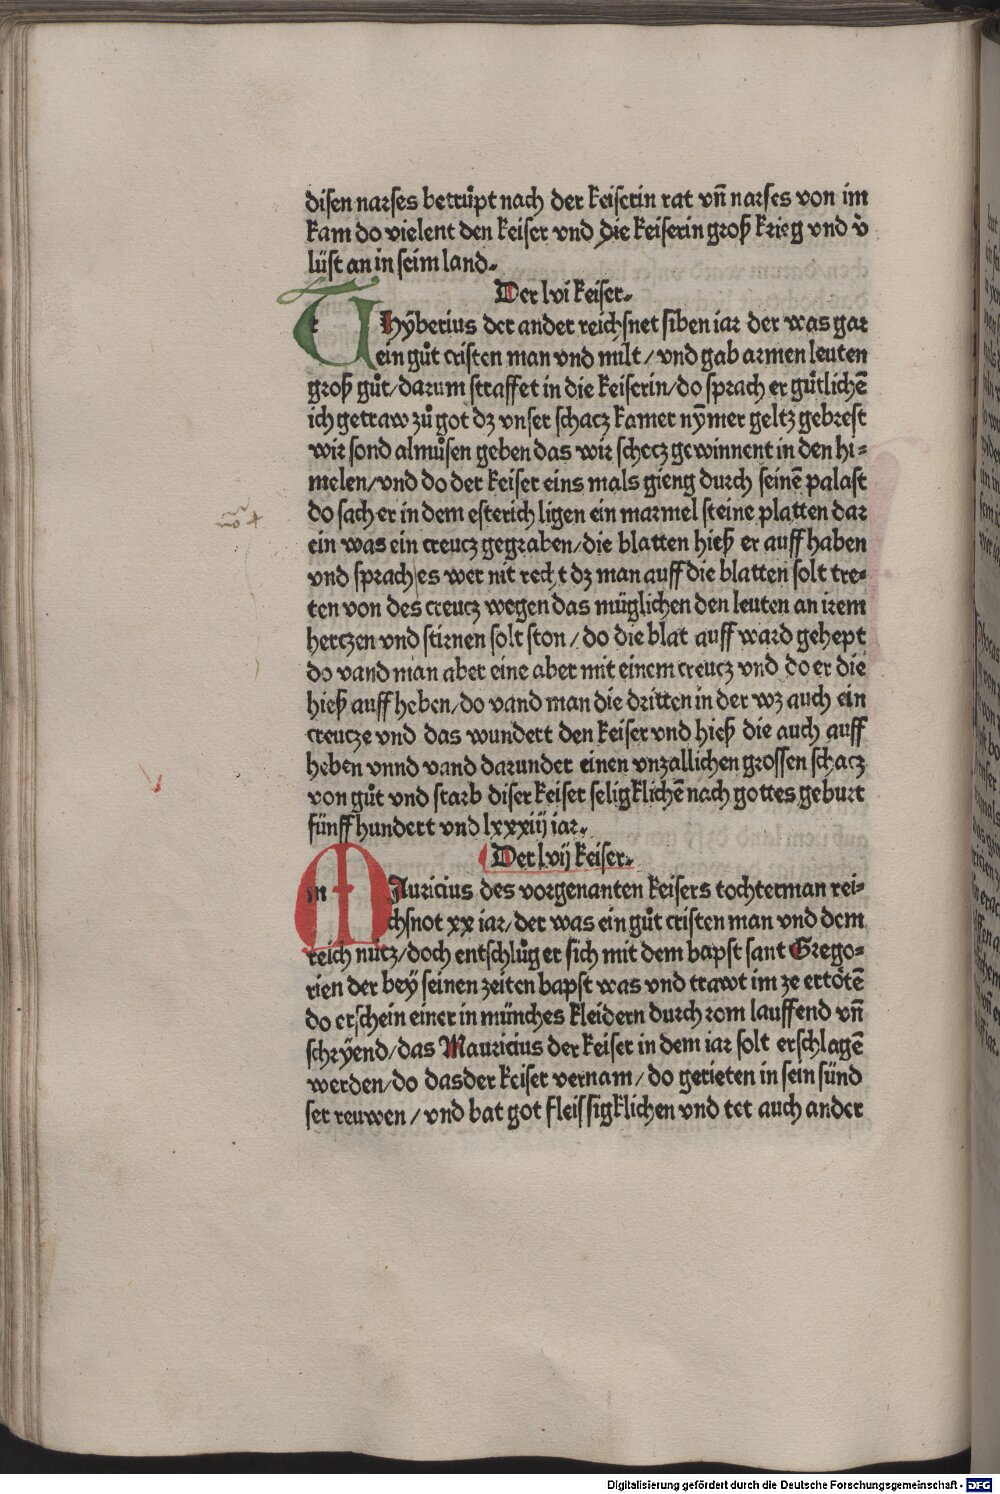 disen narses betrůpt nach der keiserin rat vn̄ narses von im
kam do vielent den keiser vnd die keiserin groß krieg vnd v̓
lüst an in seim land.
Der lvi keiser.
THÿberius der ander reichsnet siben iar der was gar
ein gůt cristen man vnd milt/ vnd gab armen leuten
groß gůt/ darum straffet in die keiserin/ do sprach er gütlichē
ich getraw zů got dz vnser schacz kamer nÿmer geltz gebrest
wir sond almůsen geben das wir schecz gewinnent in den hi⸗
melen/ vnd do der keiser eins mals gieng durch seinē palast
do sach er in dem esterich ligen ein marmel steine platten dar
ein was ein creucz gegraben/ die blatten hieß er auff haben
vnd sprach es wer nit recht dz man auff die blatten solt tre⸗
ten von des creucz wegen das müglichen den leuten an irem
hertzen vnd stirnen solt ston/ do die blat auff ward gehept
do vand man aber eine aber mit einem creucz vnd do er die
hieß auff heben/ do vand man die dritten in der wz auch ein
creucze vnd das wundert den keiser vnd hieß die auch auff
heben vnnd vand darunder einen vnzallichen grossen schacz
von gůt vnd starb diser keiser seligklichē nach gottes geburt
fünff hundert vnd lxxxiij iar.
Der lvij keiser.
MAuricius des vorgenanten keisers tochterman rei⸗
chsnot xx iar/ der was ein gůt cristen man vnd dem
reich nütz/ doch entschlůg er sich mit dem bapst sant Grego⸗
rien der bey seinen zeiten bapst was vnd trawt im ze ertötē
do erschein einer in münches kleidern durch rom lauffend vn̄
schrÿend/ das Mauricius der keiser in dem iar solt erschlagē
werden/ do das der keiser vernam/ do gerieten in sein sünd
ser reuwen/ vnd bat got fleissigklichen vnd tet auch ander
Digitalisierung gefördert durch die Deutsche Forschungsgemeinschaft - DFG